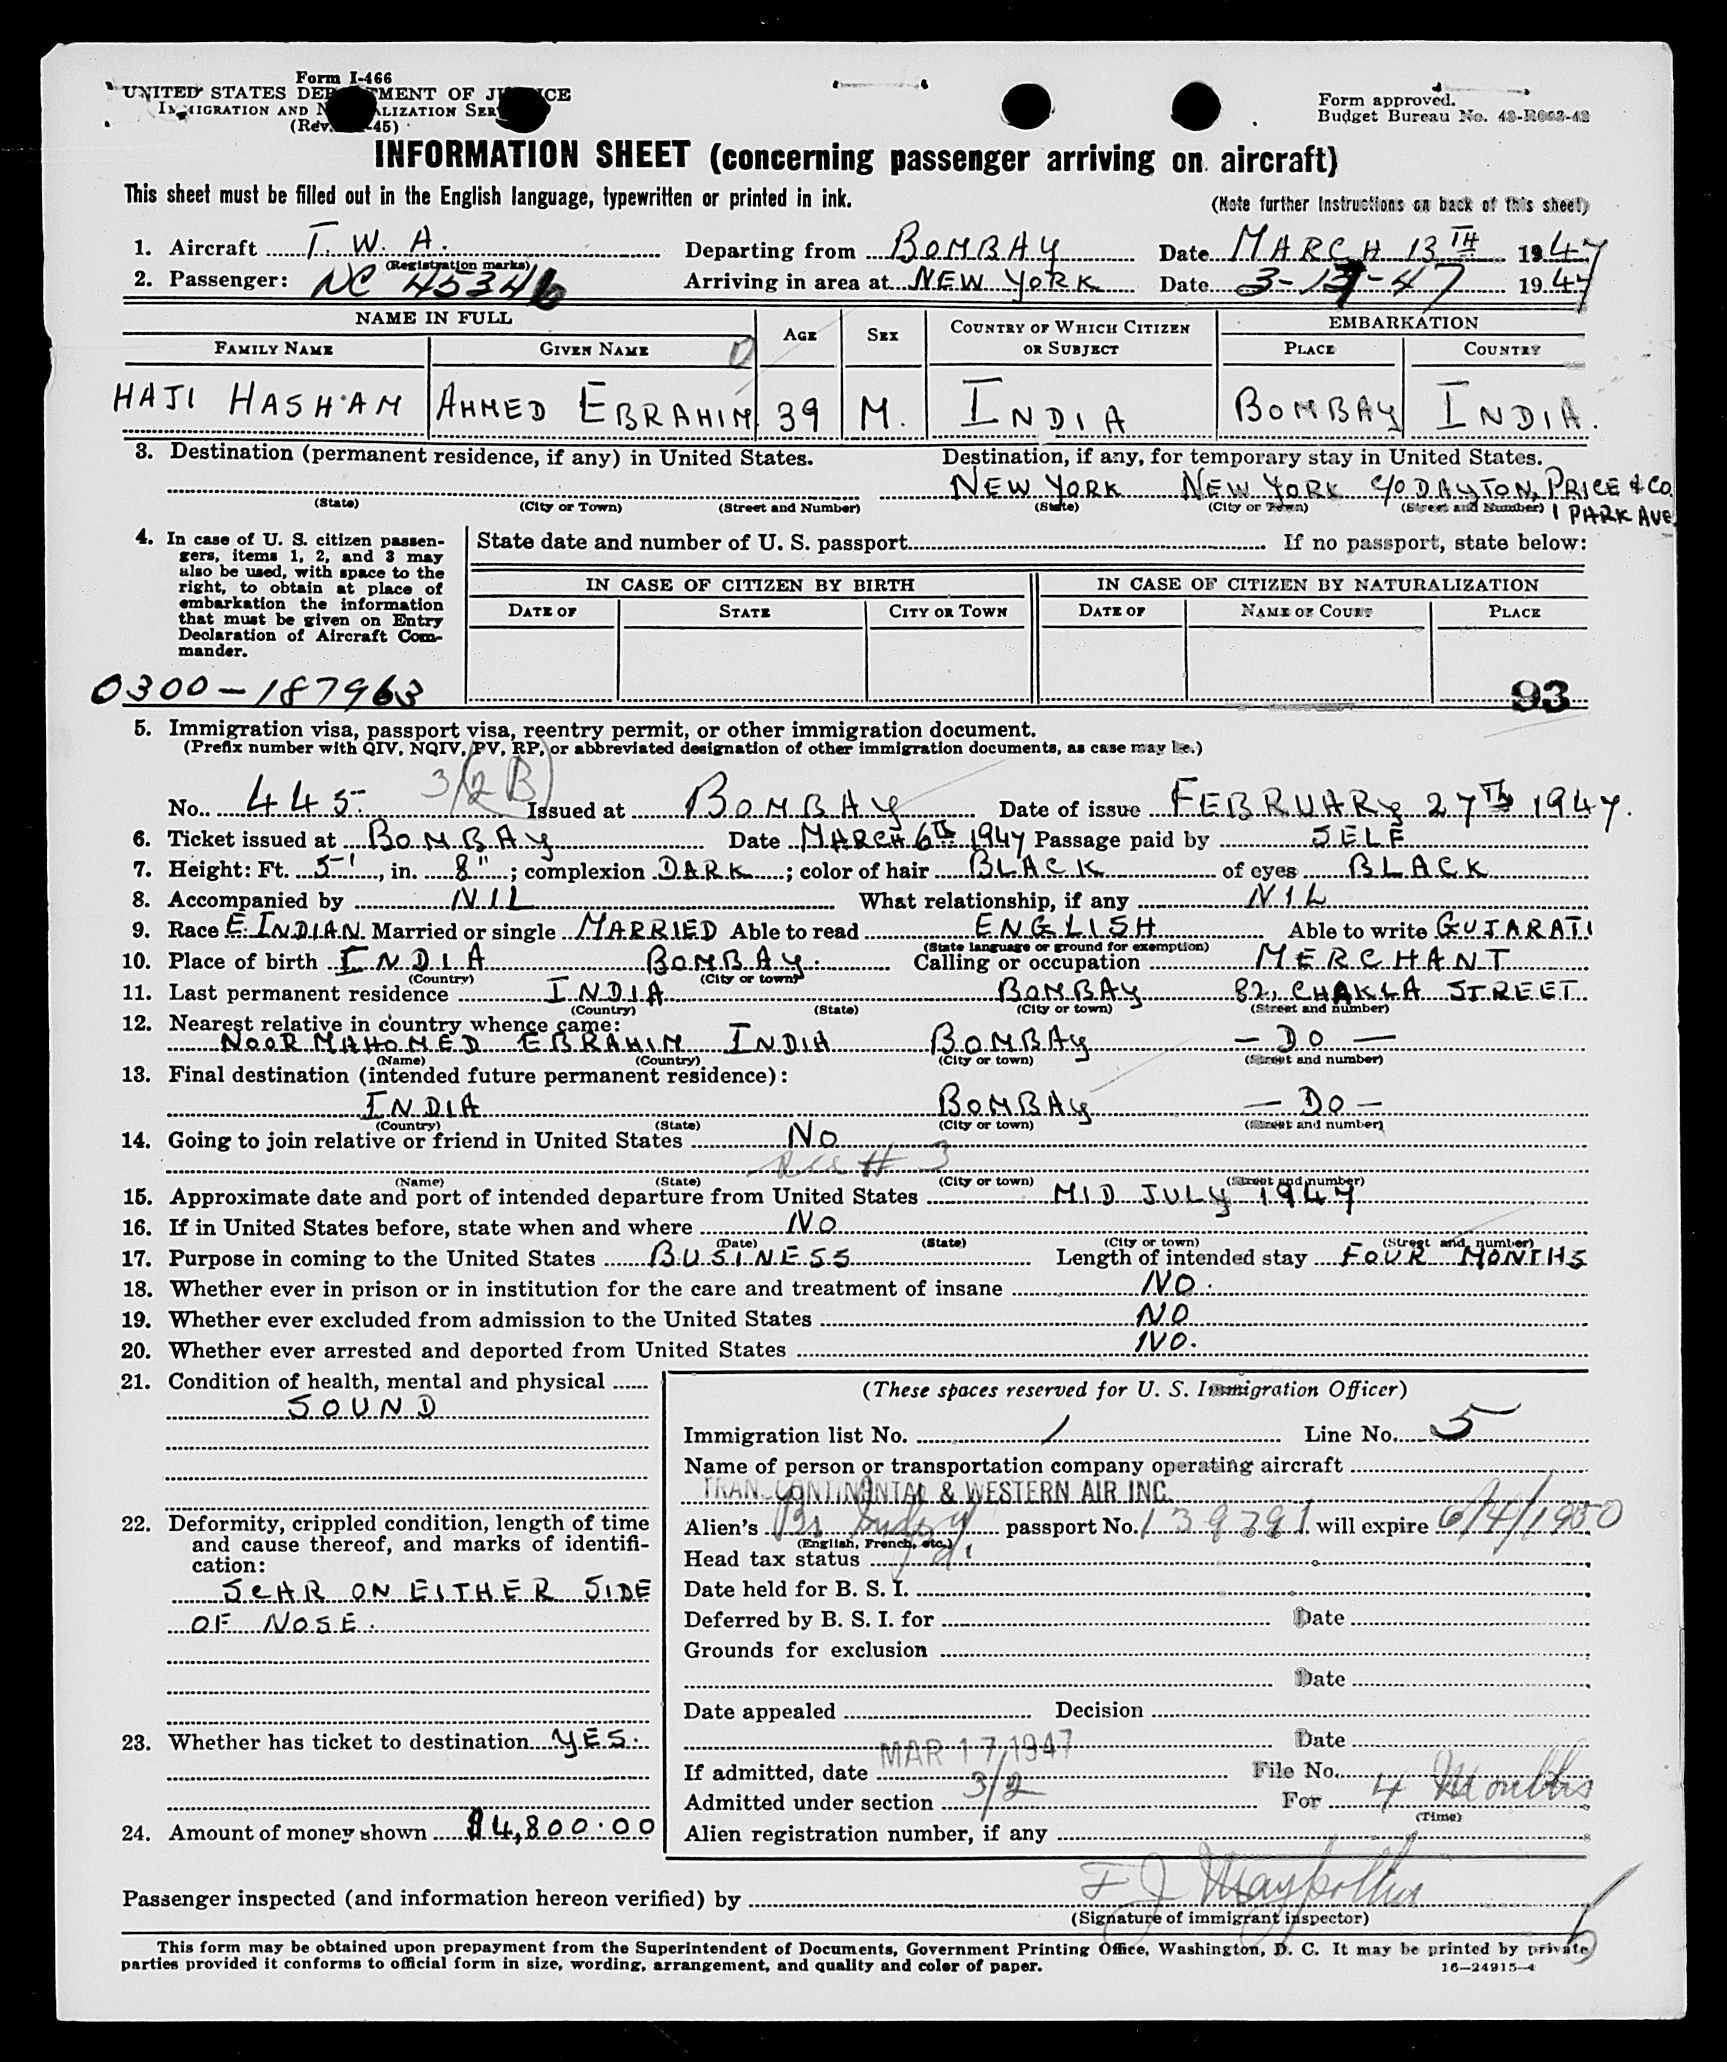 Form I-466
UNITED STATES DEPARTMENT OF JUSTICE
IMMIGRATION AND NATURALIZATION SERVICE
(Rev. -45)
Form approved.
Budget Bureau No. 43-R063-42
INFORMATION SHEET (concerning passenger arriving on aircraft)
This sheet must be filled out in the English language, typewritten or printed in ink.
(Note further instructions on back of this sheet)
1. Aircraft T. W. A. Departing from BOMBAY Date MARCH 13TH 1947
(Registration marks)
2. Passenger: NC 45346 Arriving in area at NEW YORK Date 3-17-47 1947
NAME IN FULL AGE SEX COUNTRY OF WHICH CITIZEN OR SUBJECT EMBARKATION
FAMILY NAME GIVEN NAME PLACE COUNTRY
HAJI HASHAM AHMED EBRAHIM 39 M. INDIA BOMBAY INDIA.
3. Destination (permanent residence, if any) in United States. Destination, if any, for temporary stay in United States.
NEW YORK NEW YORK C/O DAYTON, PRICE & CO.
(State) (City or Town) (Street and Number) (State) (City or Town) (Street and Number) 1 PARK AVE.
4. In case of U. S. citizen passen-
gers, items 1, 2, and 3 may
also be used, with space to the
right, to obtain at place of
embarkation the information
that must be given on Entry
Declaration of Aircraft Com-
mander.
State date and number of U. S. passport If no passport, state below:
IN CASE OF CITIZEN BY BIRTH IN CASE OF CITIZEN BY NATURALIZATION
DATE OF STATE CITY OR TOWN DATE OF NAME OF COURT PLACE
0300-187963 93
5. Immigration visa, passport visa, reentry permit, or other immigration document.
(Prefix number with QIV, NQIV, PV, RP, or abbreviated designation of other immigration documents, as case may be.)
3(2B)
No. 445. Issued at BOMBAY Date of issue FEBRUARY 27TH 1947.
6. Ticket issued at BOMBAY Date MARCH 6TH 1947 Passage paid by SELF
7. Height: Ft. 5', in. 8"; complexion DARK; color of hair BLACK of eyes BLACK
8. Accompanied by NIL What relationship, if any NIL
9. Race E. INDIAN Married or single MARRIED Able to read ENGLISH Able to write GUJARATI
(State language or ground for exemption)
10. Place of birth INDIA BOMBAY. Calling or occupation MERCHANT
(Country) (City or town)
11. Last permanent residence INDIA BOMBAY 82, CHAKLA STREET
(Country) (State) (City or town) (Street and number)
12. Nearest relative in country whence came:
NOOR MAHOMED EBRAHIM INDIA BOMBAY — DO —
(Name) (Country) (City or town) (Street and number)
13. Final destination (intended future permanent residence):
INDIA BOMBAY — DO —
(Country) (State) (City or town) (Street and number)
14. Going to join relative or friend in United States NO
# 3
(Name) (State) (City or town) (Street and number)
15. Approximate date and port of intended departure from United States MID JULY 1947
16. If in United States before, state when and where NO
(Date) (State) (City or town) (Street and number)
17. Purpose in coming to the United States BUSINESS Length of intended stay FOUR MONTHS
18. Whether ever in prison or in institution for the care and treatment of insane NO.
19. Whether ever excluded from admission to the United States NO
20. Whether ever arrested and deported from United States NO.
21. Condition of health, mental and physical
SOUND
22. Deformity, crippled condition, length of time
and cause thereof, and marks of identifi-
cation:
SCAR ON EITHER SIDE
OF NOSE.
23. Whether has ticket to destination YES.
24. Amount of money shown $4,800.00
(These spaces reserved for U. S. Immigration Officer)
Immigration list No. 1 Line No. 5
Name of person or transportation company operating aircraft
TRANSCONTINENTAL & WESTERN AIR INC.
Alien's Br passport No. 139791 will expire 6/4/1950
(English, French, etc.)
Head tax status
Date held for B. S. I.
Deferred by B. S. I. for Date
Grounds for exclusion
Date
Date appealed Decision
Date
MAR 17 1947
If admitted, date File No.
Admitted under section 3/2 For 4 Months
(Time)
Alien registration number, if any
Passenger inspected (and information hereon verified) by F J
(Signature of immigrant inspector)
This form may be obtained upon prepayment from the Superintendent of Documents, Government Printing Office, Washington, D. C. It may be printed by private
parties provided it conforms to official form in size, wording, arrangement, and quality and color of paper.
16—24915-4